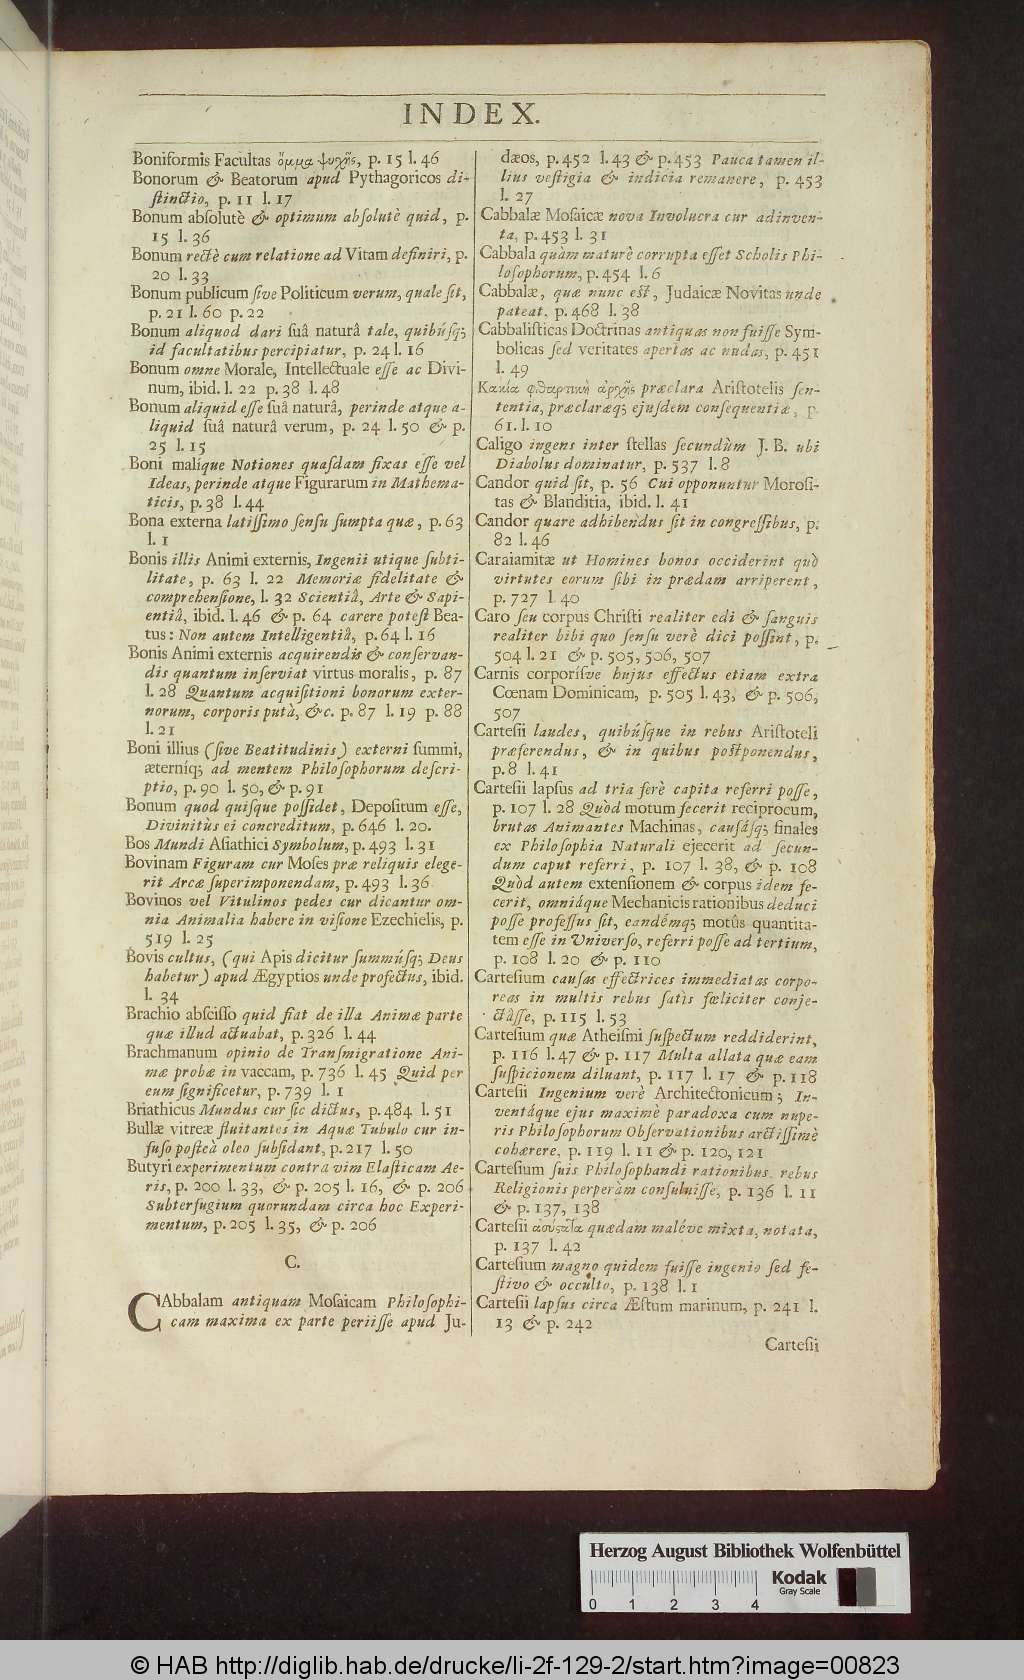 INDEX.
Boniformis Facultas ὄμμα ψυχῆς, p. 15 l. 46
Bonorum & Beatorum apud Pythagoricos di-
ſtinctio, p. 11 l. 17
Bonum abſolutè & optimum abſolutè quid, p.
15 l. 36
Bonum rectè cum relatione ad Vitam definiri, p.
20 l. 33
Bonum publicum ſive Politicum verum, quale ſit,
p. 21 l. 60 p. 22
Bonum aliquod dari ſuâ naturâ tale, quibúſq;
id facultatibus percipiatur, p. 24 l. 16
Bonum omne Morale, Intellectuale eſſe ac Divi-
num, ibid. l. 22 p. 38 l. 48
Bonum aliquid eſſe ſuâ naturâ, perinde atque a-
liquid ſuâ naturâ verum, p. 24 l. 50 & p.
25 l. 15
Boni malíque Notiones quaſdam fixas eſſe vel
Ideas, perinde atque Figurarum in Mathema-
ticis, p. 38 l. 44
Bona externa latiſſimo ſenſu ſumpta quæ, p. 63
l. 1
Bonis illis Animi externis, Ingenii utique ſubti-
litate, p. 63 l. 22 Memoriæ fidelitate &
comprehenſione, l. 32 Scientiâ, Arte & Sapi-
entiâ, ibid. l. 46 & p. 64 carere poteſt Bea-
tus: Non autem Intelligentiâ, p. 64 l. 16
Bonis Animi externis acquirendis & conſervan-
dis quantum inſerviat virtus moralis, p. 87
l. 28 Quantum acquiſitioni bonorum exter-
norum, corporis putà, &c. p. 87 l. 19 p. 88
l. 21
Boni illius (ſive Beatitudinis) externi ſummi,
æterníq; ad mentem Philoſophorum deſcri-
ptio, p. 90 l. 50, & p. 91
Bonum quod quiſque poſſidet, Depoſitum eſſe,
Divinitùs ei concreditum, p. 646 l. 20.
Bos Mundi Aſiathici Symbolum, p. 493 l. 31
Bovinam Figuram cur Moſes præ reliquis elege-
rit Arcæ ſuperimponendam, p. 493 l. 36
Bovinos vel Vitulinos pedes cur dicantur om-
nia Animalia habere in viſione Ezechielis, p.
519 l. 25
Bovis cultus, (qui Apis dicitur ſummúſq; Deus
habetur) apud Ægyptios unde profectus, ibid.
l. 34
Brachio abſciſſo quid fiat de illa Animæ parte
quæ illud actuabat, p. 326 l. 44
Brachmanum opinio de Tranſmigratione Ani-
mæ probæ in vaccam, p. 736 l. 45 Quid per
eum ſignificetur, p. 739 l. 1
Briathicus Mundus cur ſic dictus, p. 484 l. 51
Bullæ vitreæ fluitantes in Aquæ Tubulo cur in-
fuſo poſteà oleo ſubſidant, p. 217 l. 50
Butyri experimentum contra vim Elaſticam Ae-
ris, p. 200 l. 33, & p. 205 l. 16, & p. 206
Subterfugium quorundam circa hoc Experi-
mentum, p. 205 l. 35, & p. 206
C.
CAbbalam antiquam Moſaicam Philoſophi-
cam maxima ex parte periiſſe apud Ju-
dæos, p. 452 l. 43 & p. 453 Pauca tamen il-
lius veſtigia & indicia remanere, p. 453
l. 27
Cabbalæ Moſaicæ nova Involucra cur adinven-
ta, p. 453 l. 31
Cabbala quàm maturè corrupta eſſet Scholis Phi-
loſophorum, p. 454 l. 6
Cabbalæ, quæ nunc eſt, Judaicæ Novitas unde
pateat, p. 468 l. 38
Cabbaliſticas Doctrinas antiquas non fuiſſe Sym-
bolicas ſed veritates apertas ac nudas, p. 451
l. 49
Κακία φθαρτικὴ ἀρχῆς præclara Ariſtotelis ſen-
tentia, præclaræq; ejuſdem conſequentiæ, p.
61. l. 10
Caligo ingens inter ſtellas ſecundùm J. B. ubi
Diabolus dominatur, p. 537 l. 8
Candor quid ſit, p. 56 Cui opponuntur Moroſi-
tas & Blanditia, ibid. l. 41
Candor quare adhibendus ſit in congreſſibus, p.
82 l. 46
Caraiamitæ ut Homines bonos occiderint quò
virtutes eorum ſibi in prædam arriperent,
p. 727 l. 40
Caro ſeu corpus Chriſti realiter edi & ſanguis
realiter bibi quo ſenſu verè dici poſſint, p.
504 l. 21 & p. 505, 506, 507
Carnis corporíſve hujus effectus etiam extra
Cœnam Dominicam, p. 505 l. 43, & p. 506,
507
Carteſii laudes, quibúſque in rebus Ariſtoteli
præferendus, & in quibus poſtponendus,
p. 8 l. 41
Carteſii lapſus ad tria ferè capita referri poſſe,
p. 107 l. 28 Quòd motum fecerit reciprocum,
brutas Animantes Machinas, cauſáſq; finales
ex Philoſophia Naturali ejecerit ad ſecun-
dum caput referri, p. 107 l. 38, & p. 108
Quòd autem extenſionem & corpus idem fe-
cerit, omniáque Mechanicis rationibus deduci
poſſe profeſſus ſit, eandémq; motûs quantita-
tem eſſe in Univerſo, referri poſſe ad tertium,
p. 108 l. 20 & p. 110
Carteſium cauſas effectrices immediatas corpo-
reas in multis rebus ſatìs fœliciter conje-
ctâſſe, p. 115 l. 53
Carteſium quæ Atheiſmi ſuſpectum reddiderint,
p. 116 l. 47 & p. 117 Multa allata quæ eam
ſuſpicionem diluant, p. 117 l. 17 & p. 118
Carteſii Ingenium verè Architectonicum; In-
ventáque ejus maximè paradoxa cum nupe-
ris Philoſophorum Obſervationibus arctiſſimè
cohærere, p. 119 l. 11 & p. 120, 121
Carteſium ſuis Philoſophandi rationibus rebus
Religionis perperàm conſuluiſſe, p. 136 l. 11
& p. 137, 138
Carteſii quædam maléve mixta, notata,
p. 137 l. 42
Carteſium magno quidem fuiſſe ingenio ſed fe-
ſtivo & occulto, p. 138 l. 1
Carteſii lapſus circa Æſtum marinum, p. 241 l.
13 & p. 242
Carteſii
Herzog August Bibliothek Wolfenbüttel
Kodak
Gray Scale
0 1 2 3 4
© HAB http://diglib.hab.de/drucke/li-2f-129-2/start.htm?image=00823